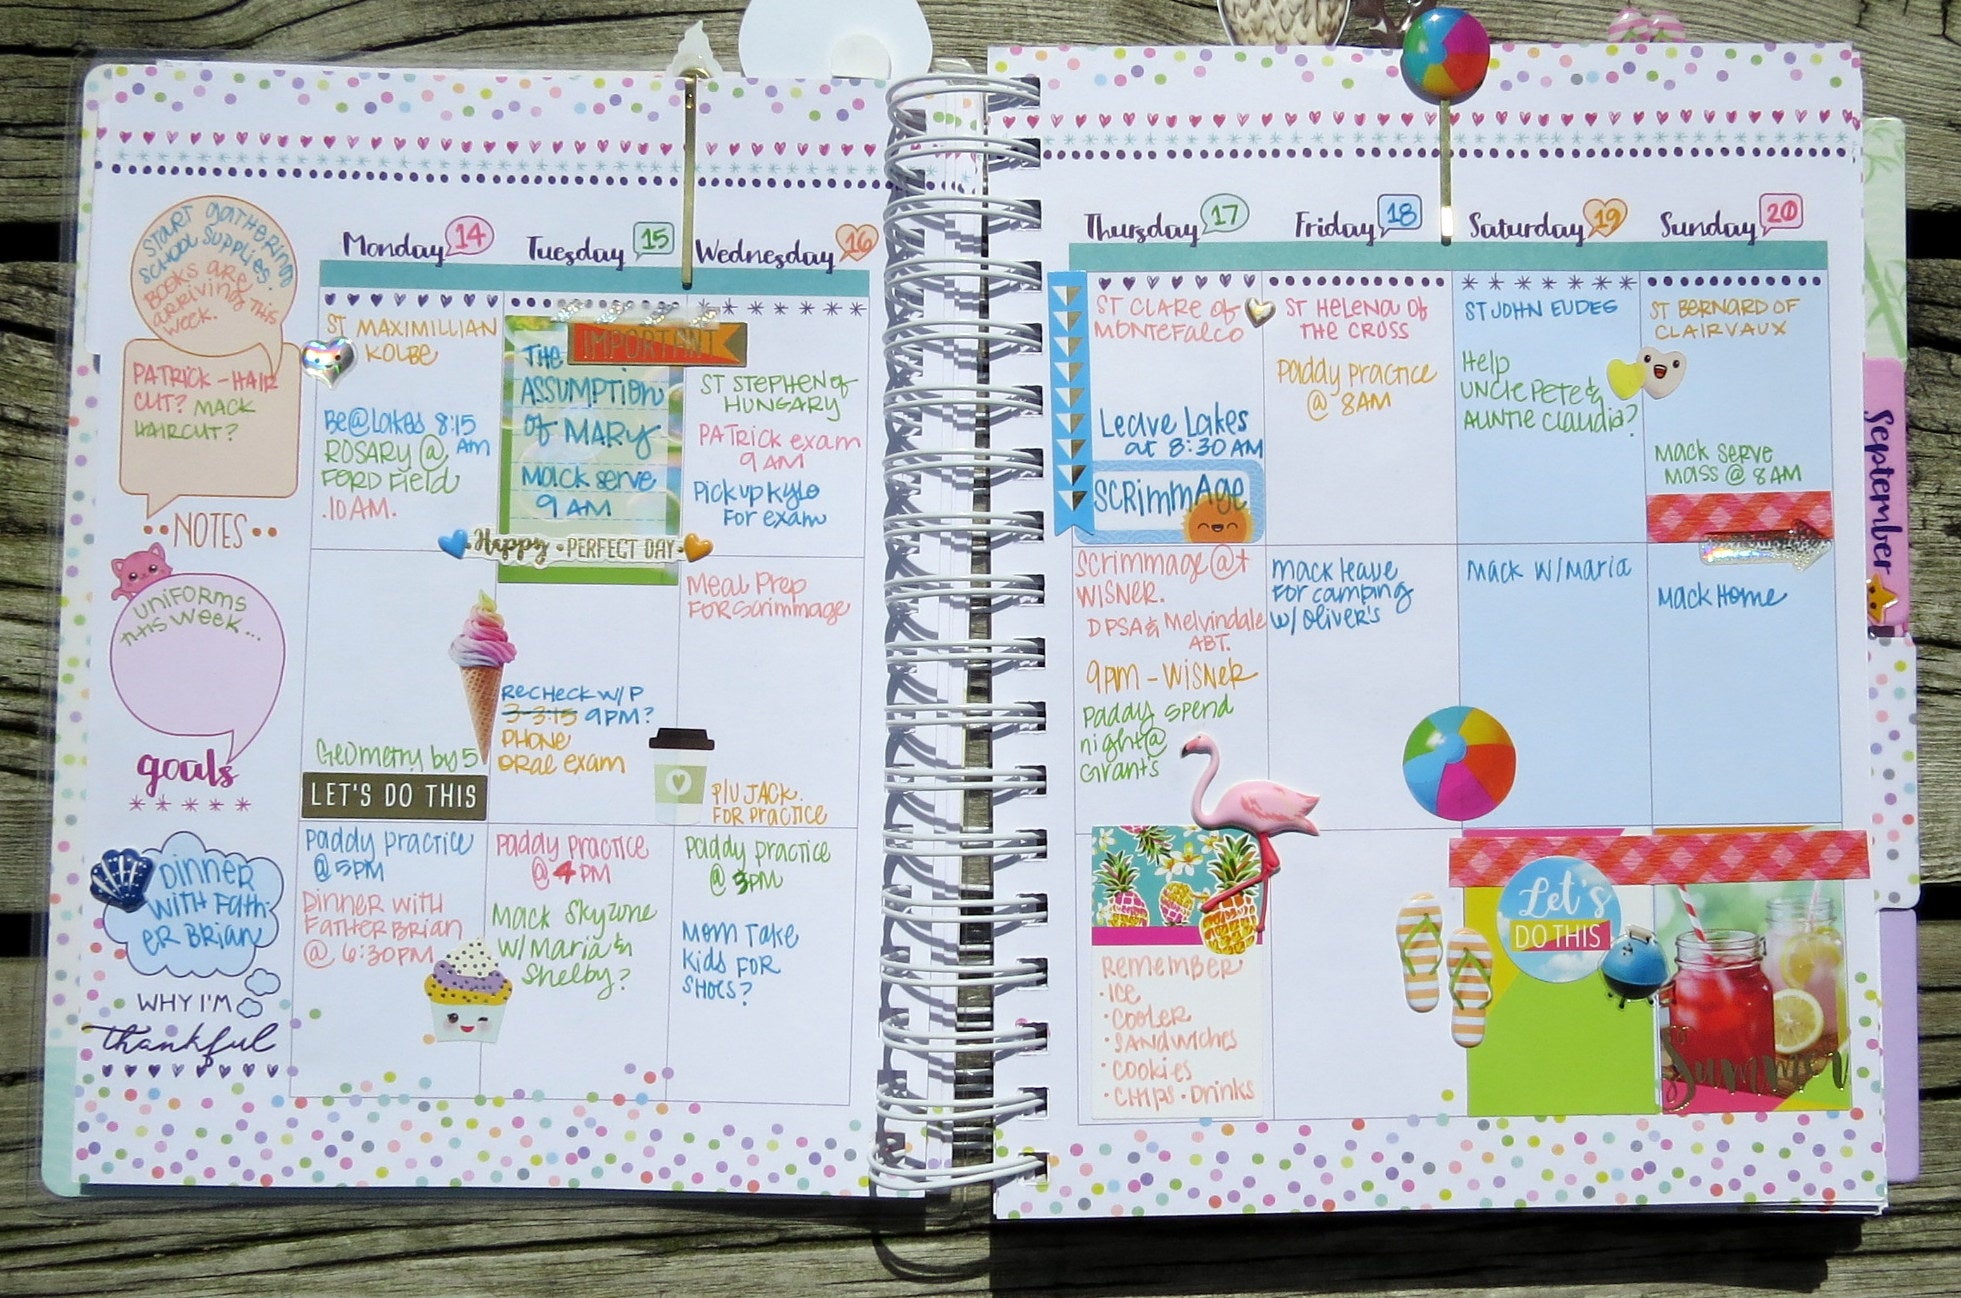 START GATHERING
SCHOOL SUPPLIES.
BOOKS ARE
ARRIVING THIS
WEEK.
PATRICK - HAIR
CUT? MACK
HAIRCUT?
NOTES
UNIFORMS
THIS WEEK...
goals
DINNER
WITH FATH-
ER BRIAN
WHY I'M
thankful
Monday 14
ST MAXIMILLIAN
KOLBE
Be@Lakes 8:15
AM
ROSARY @
FORD FIELD
10 AM.
Geometry by 5
LET'S DO THIS
Paddy Practice
@ 5PM
Dinner with
FATHER BRIAN
@ 6:30PM
Tuesday 15
IMPORTANT
THE
ASSUMPTION
OF MARY
Mack serve
9 AM
Happy PERFECT DAY
RECHECK W/P
3-3:15 9PM?
PHONE
ORAL EXAM
Paddy Practice
@ 4 PM
Mack Skyzone
W/Maria &
Shelby?
Wednesday 16
ST STEPHEN OF
HUNGARY
PATRICK exam
9 AM
Pick up Kylo
For exam
MEAL PREP
FOR Scrimmage
P/U JACK.
FOR PRACTICE
Paddy Practice
@ 3PM
Mom TAKE
KIDS FOR
SHOES?
Thursday 17
ST CLARE OF
MONTEFALCO
Leave Lakes
at 8:30 AM
SCRIMMAGE
Scrimmage @t
WISNER.
DPSA & Melvindale
ABT.
9pm - WISNER
Paddy Spend
night @
Grant's
REMEMBER
• ICE
• COOLER
• SANDWICHES
• COOKIES
• CHIPS • DRINKS
Friday 18
ST HELENA OF
THE CROSS
Paddy Practice
@ 8AM
Mack leave
For camping
W/ Oliver's
Saturday 19
ST JOHN EUDES
Help
UNCLE PETE &
AUNTIE Claudia?
Mack W/Maria
Let's
DO THIS
Sunday 20
ST BERNARD OF
CLAIRVAUX
Mack Serve
Mass @ 8AM
Mack Home
Summer
September